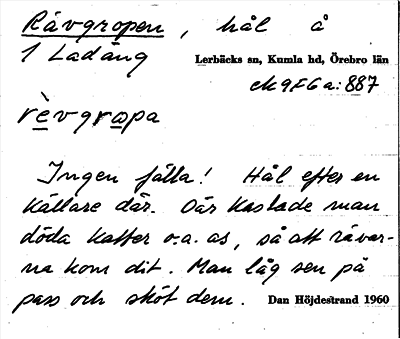 Rävgropen, hål å
1 Ladäng
Lerbäcks sn, Kumla hd, Örebro län
ek 9F6a:887
rèvgrɷpa
Ingen fälla! Hål efter en
källare där. Där kastade man
döda katter o.a. as, så att rävar-
na kom dit. Man låg sen på
pass och sköt dem.
Dan Höjdestrand 1960